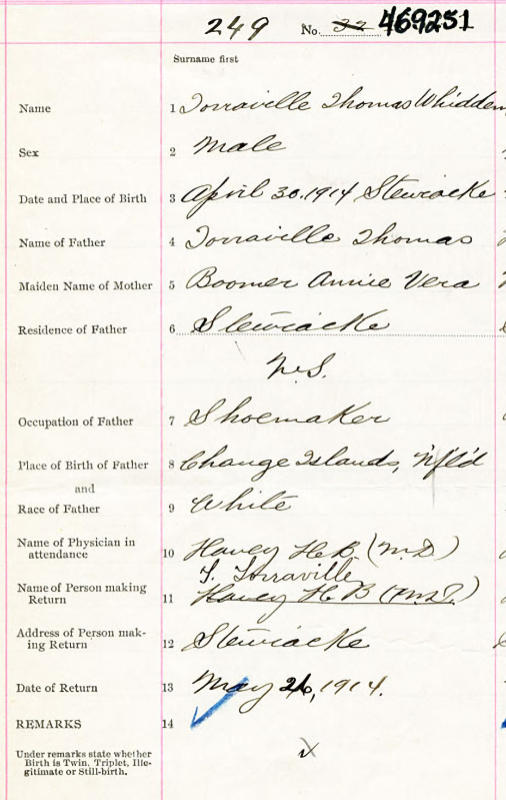 249 No. 32 469251
Surname first
Name 1 Torraville Thomas Whidden
Sex 2 Male
Date and Place of Birth 3 April 30, 1914 Stewiacke
Name of Father 4 Torraville Thomas
Maiden Name of Mother 5 Boomer Annie Vera
Residence of Father 6 Stewiacke
N.S.
Occupation of Father 7 Shoemaker
Place of Birth of Father 8 Change Islands, Nf'l'd
and
Race of Father 9 White
Name of Physician in
attendance 10 H. B. (M.D)
T. Torraville
Name of Person making
Return 11 H B (M.D.)
Address of Person mak-
ing Return 12 Stewiacke
Date of Return 13 May 26, 1914.
REMARKS 14
Under remarks state whether
Birth is Twin, Triplet, Ille-
gitimate or Still-birth.